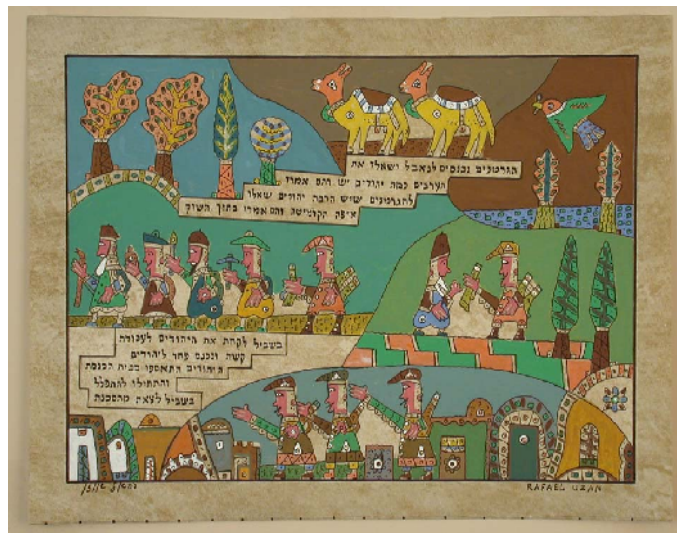 הגרמנים נכנסים לנאבל ושאלו את
הערבים כמה יהודים יש והם אמרו
להגרמנים שיש הרבה יהודים שאלו
איפה הקומיטה והם אמרו בתוך השוק
בשביל לקחת את היהודים לעבודה
קשה ונכנס פחד ליהודים
היהודים התאספו בבית הכנסת
והתחילו להתפלל
בשביל לצאת מהסכנה
רפאל עוזן
RAFAEL UZAN